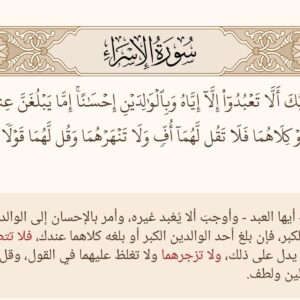 سُورَةُ الْإِسْرَاءِ
أَلَّا تَعْبُدُوٓا۟ إِلَّآ إِيَّاهُ وَبِٱلْوَٰلِدَيْنِ إِحْسَٰنًا ۚ إِمَّا يَبْلُغَنَّ
كِلَاهُمَا فَلَا تَقُل لَّهُمَآ أُفٍّ وَلَا تَنْهَرْهُمَا وَقُل لَّهُمَا قَوْلًا
أيها العبد - وأوجبَ ألا يُعبد غيره، وأمر بالإحسان إلى
الكبر، فإن بلغ أحد الوالدين الكبر أو بلغه كلاهما عندك،
يدل على ذلك، ولا تزجرهما ولا تغلظ عليهما في القول،
ولطف.